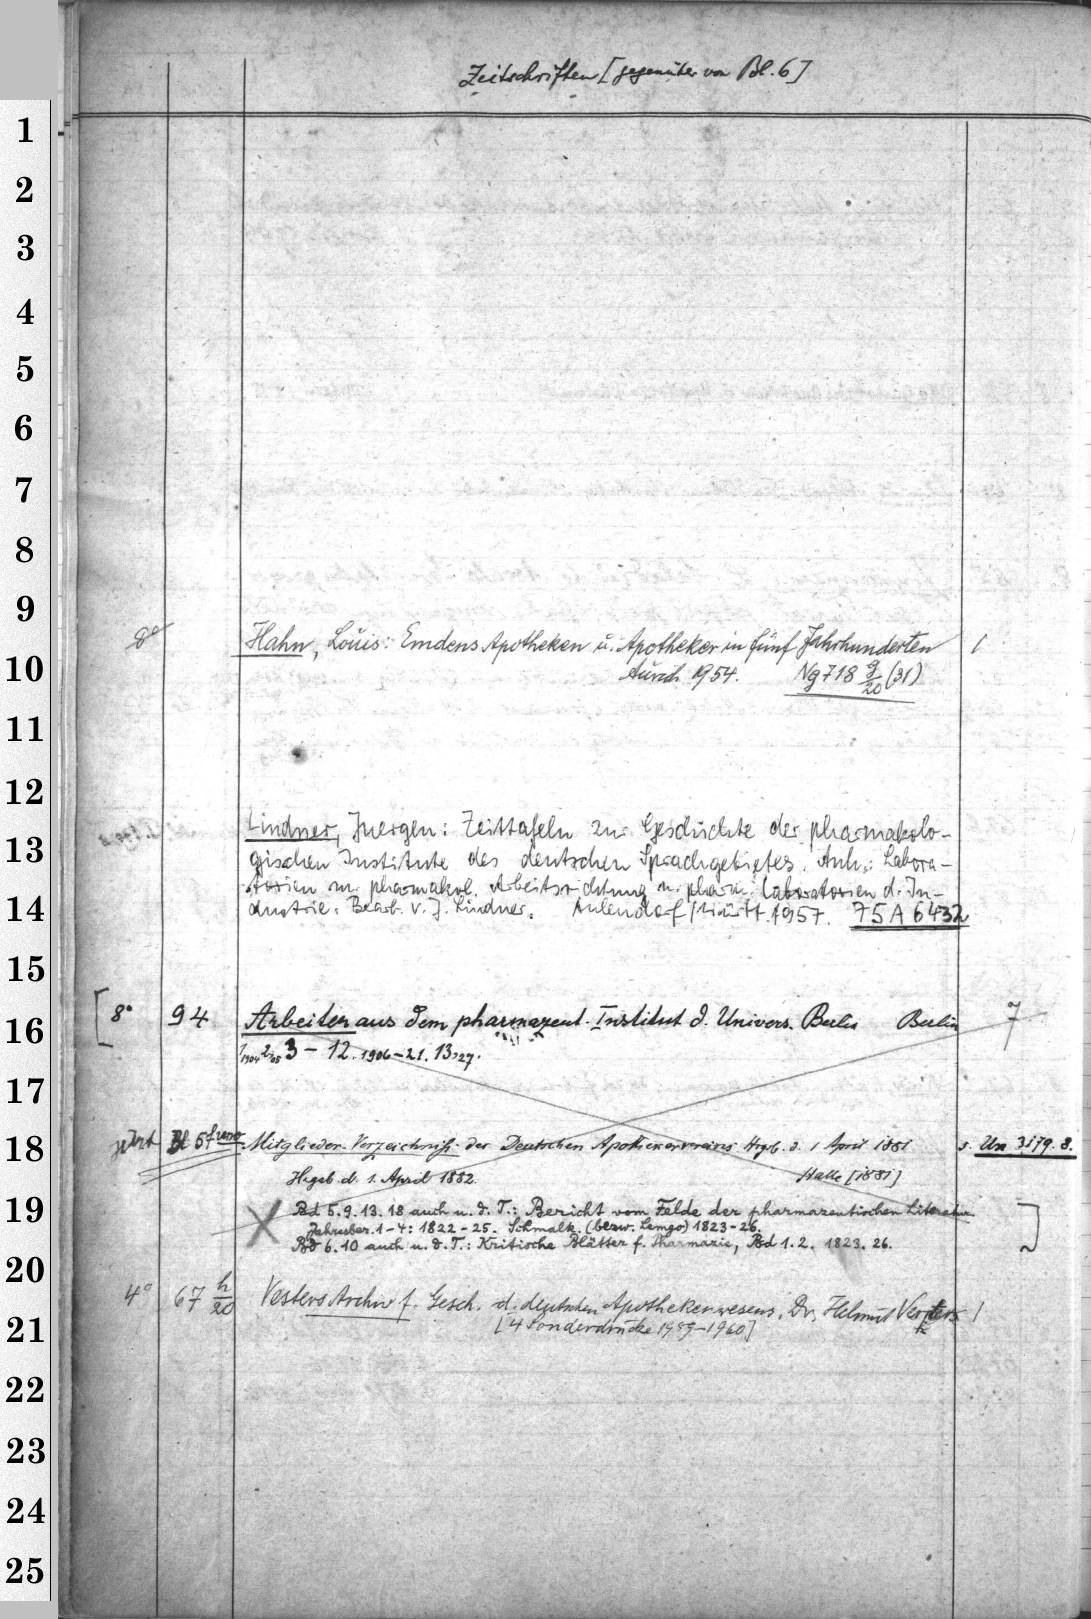 Zeitschriften [gegenüber von Bl. 6]
1
2
3
4
5
6
7
8
9
8° Hahn, Louis: Emdens Apotheken u. Apotheker in fünf Jahrhunderten 1
10
Aurich 1954. Ng 718 g/20 (31)
11
12
Lindner, Juergen: Zeittafeln zur Geschichte der pharmakolo-
13
gischen Institute des deutschen Sprachgebietes. Anh.: Labora-
torien m. pharmakol. Arbeitsrichtung u. pharm. Laboratorien d. In-
14
dustrie. Bearb. v. J. Lindner. Aulendorf/Württ. 1957. 75 A 6432
15
[8° 94 Arbeiten aus dem pharmazeut. Institut d. Univers. Berlin Berlin 7
16
1, 1904 2, 05 3 - 12. 1906-21. 13, 27.
17
18
jetzt Bl 5 Mitglieder-Verzeichniß der Deutschen Apothekervereins Hrgb. d. 1 April 1881 s. Un 3179. 8.
Hrgeb. d. 1. April 1882. Halle [1881]
19
Bd 5. 9. 13. 18 auch u. d. T.: Bericht vom Felde der pharmazeutischen Literatur. ]
Jahresber. 1-4: 1822-25. Schmalk. (bezw. Lemgo) 1823-26.
Bd 6. 10 auch u. d. T.: Kritische Blätter f. Pharmazie, Bd 1. 2. 1823. 26.
20
4° 67 h/20 Vesters Archiv f. Gesch. d. deutschen Apothekenwesens. Dr. Helmut Vesters 1
21
[4 Sonderdrucke 1959-1960]
22
23
24
25